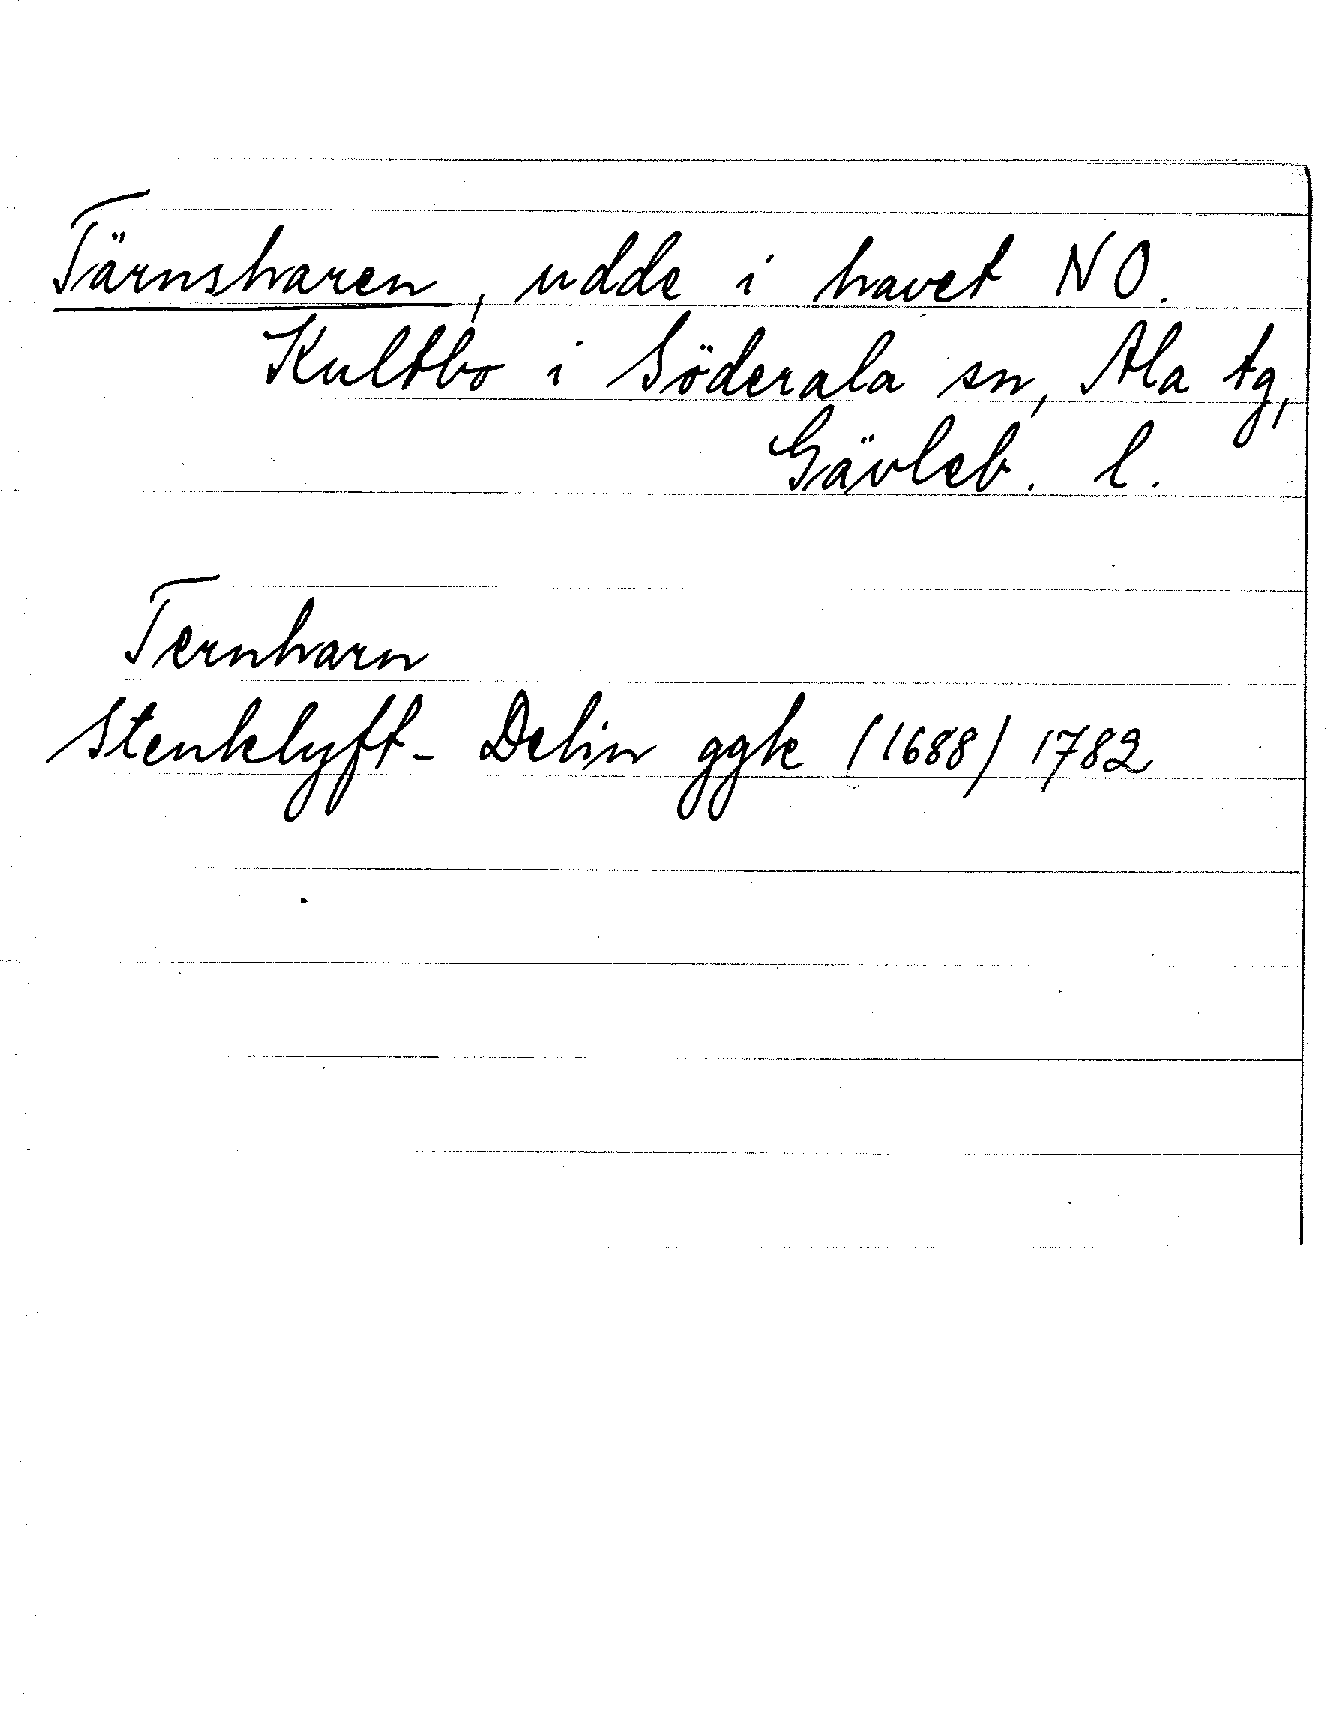 Tärnsharen, udde i havet NO.
Kultbo i Söderala sn, Ala tg,
Gävleb. l.
Ternharn
Stenklyft- Delin ggk (1688) 1782